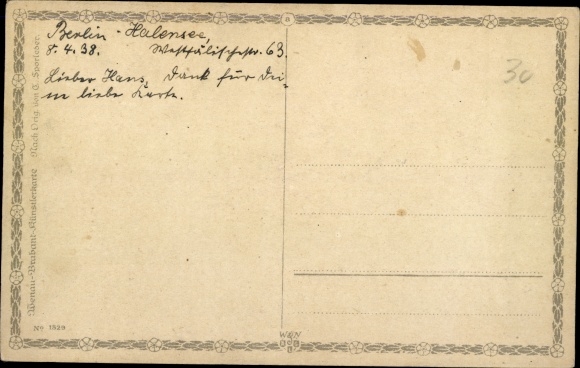 Berlin-Halensee,
8.4.38. Westfälischestr. 63.
Lieber Hans, Dank für Dei-
ne liebe Karte.
30
Wenau-Brabant-Künstlerkarte Nach Orig. von
No 1529
a